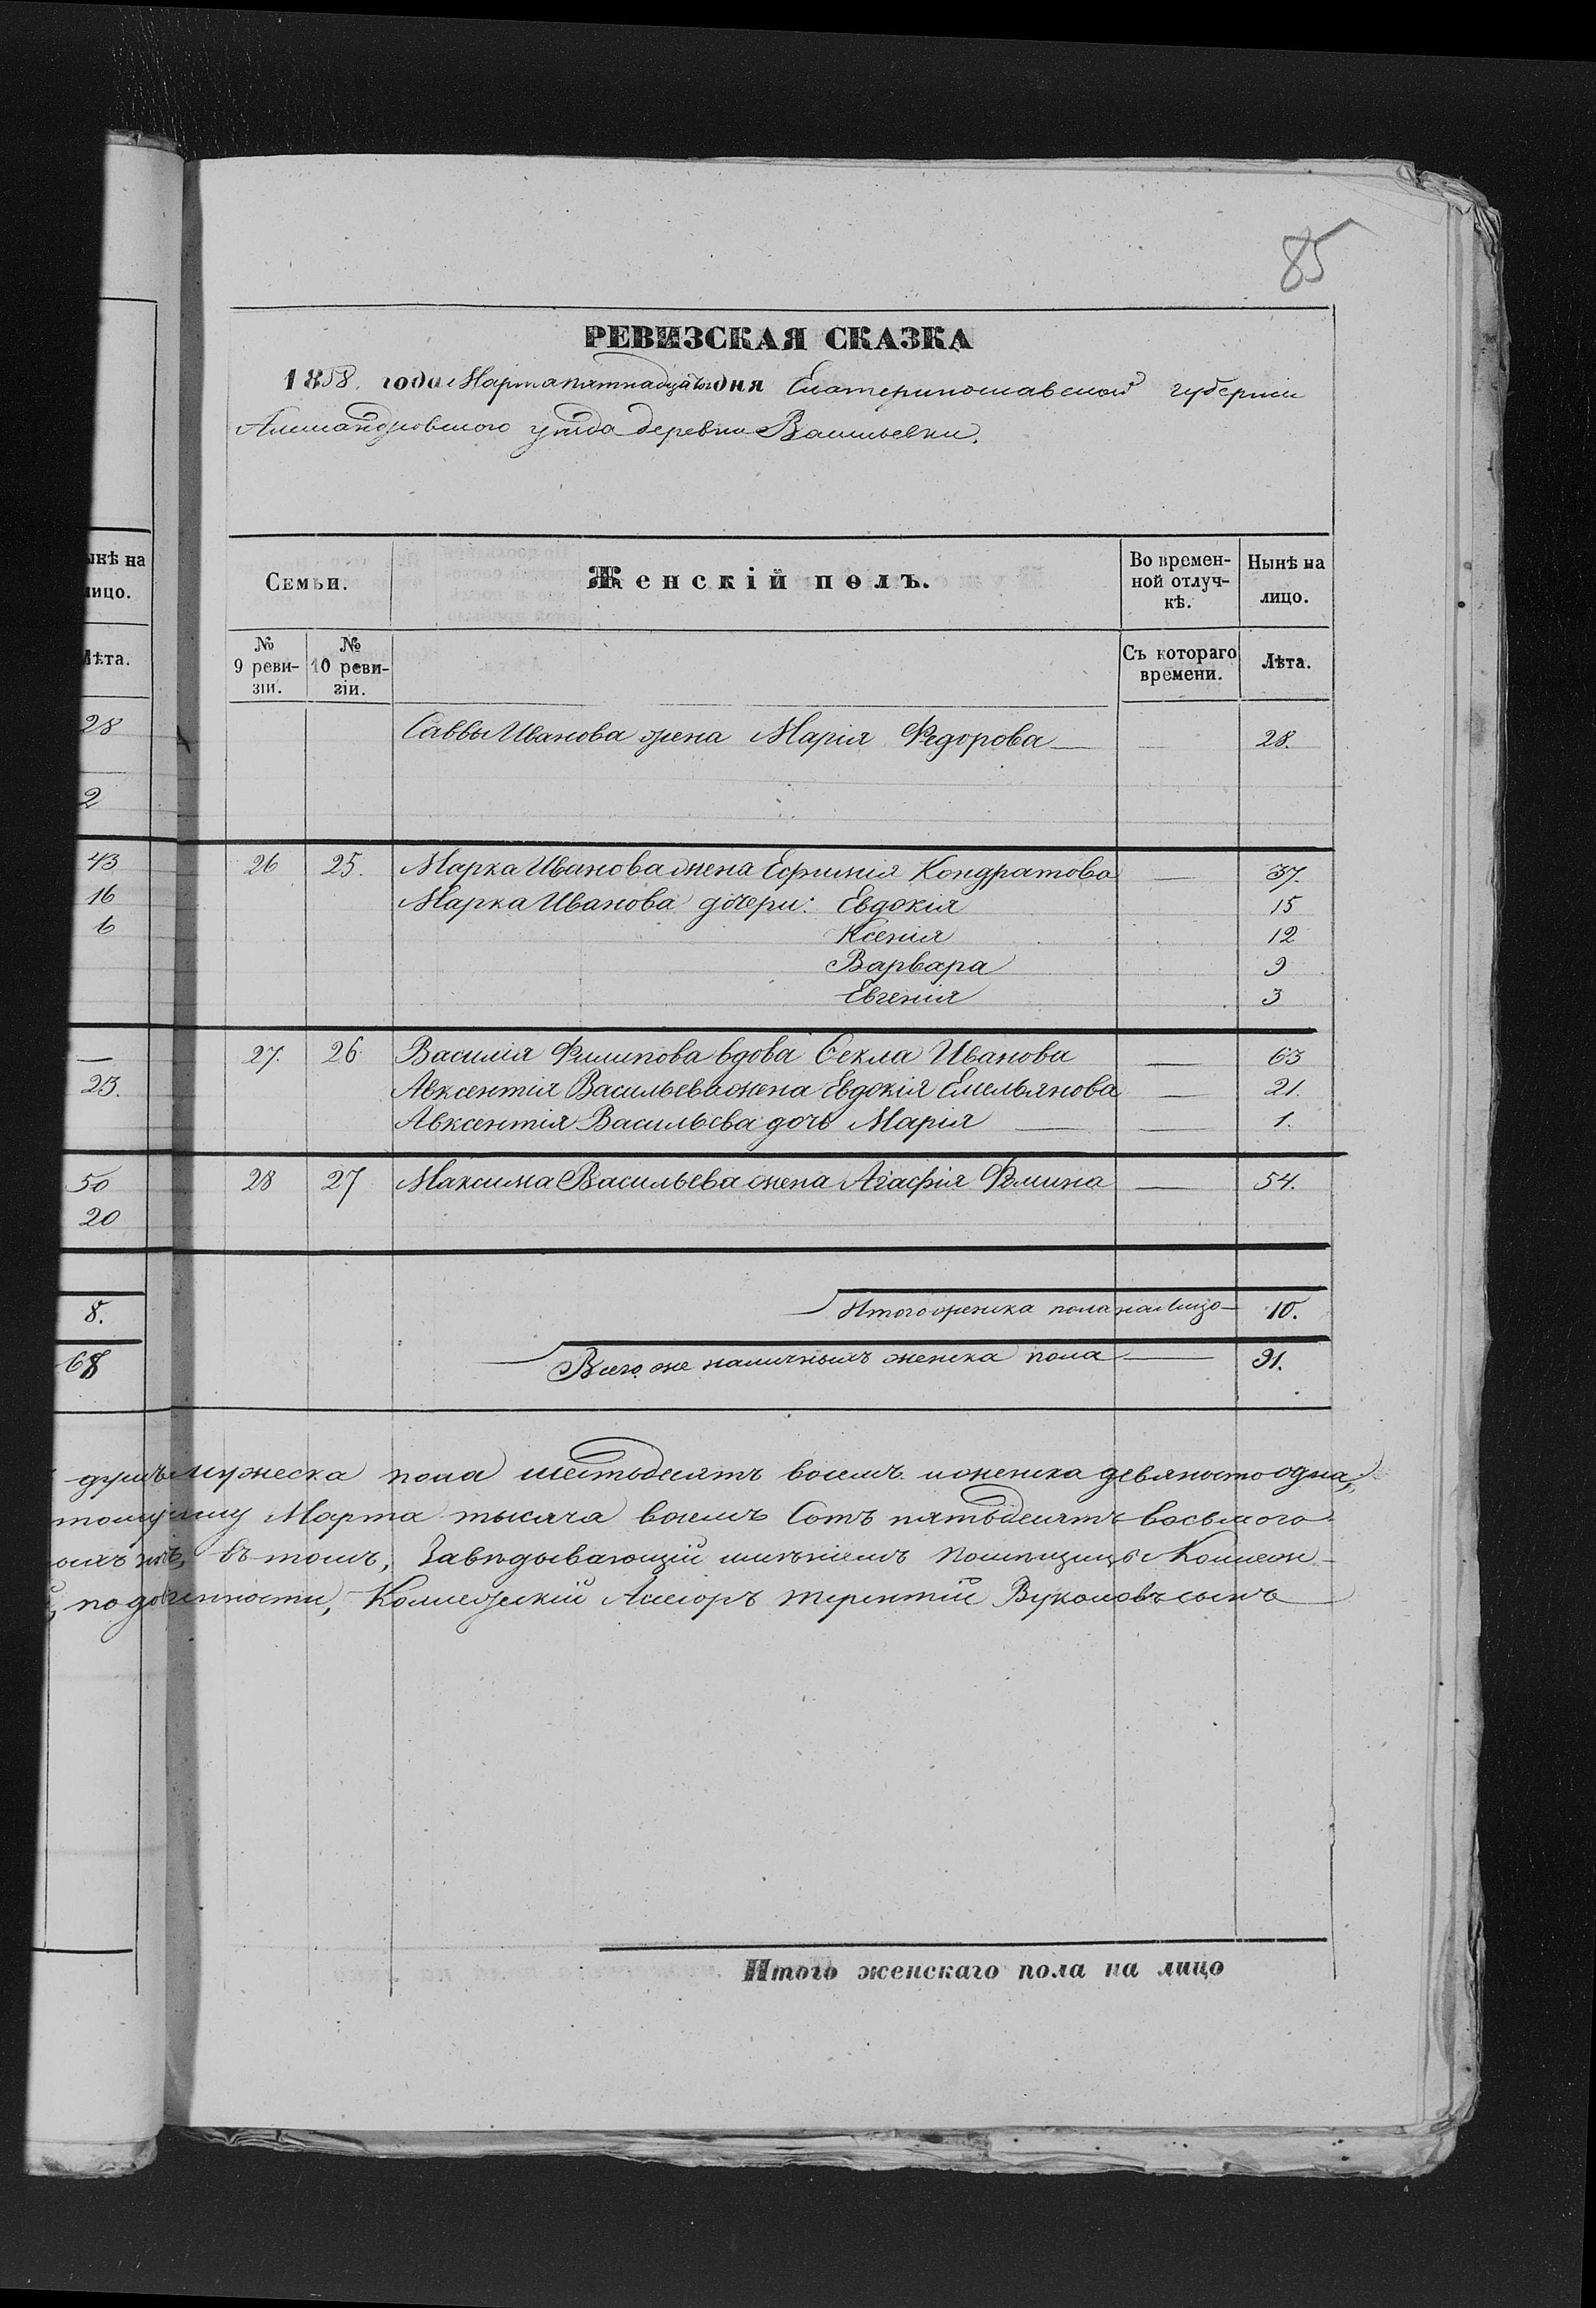 85
РЕВИЗСКАЯ СКАЗКА
1858. года Марта пятнадцатого дня Екатеринославской губернии
Александровского уѣзда деревни Васильевки.
ынѣ на
лицо.
Лѣта.
28
2
43
16
6
—
23.
50
20
8.
68
Семьи.
Женскій полъ.
Во времен-
ной отлуч-
кѣ.
Нынѣ на
лицо.
№
9 реви-
зіи.
№
10 реви-
зіи.
Съ котораго
времени.
Лѣта.
Саввы Иванова жена Марія Федорова — 28.
26 25. Марка Иванова жена Ефимія Кондратова — 37.
Марка Иванова дочери: Евдокія 15
Ксенія 12
Варвара 9
Евгенія 3
27. 26 Василія Филипова вдова Ѳекла Иванова — 63
Авксентія Васильева жена Евдокія Емельянова — 21.
Авксентія Васильева дочь Марія — 1.
28 27 Максима Васильева жена Агафія Фомина — 54.
Итого женска пола на лицо — 10.
Всего же наличныхъ женска пола — 91.
душъ мужеска пола шестьдесятъ восемь и женска девяносто одна,
Марта тысяча восемь Сотъ пятьдесятъ восьмого
въ томъ, Завѣдывающій имѣніемъ помѣщицы Коллеж-
Коллежскій Ассесоръ Терентій Вуколовъ сынъ
Итого женскаго пола на лицо